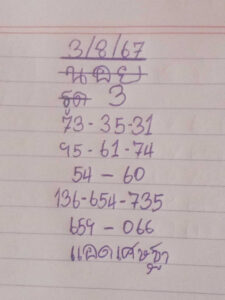 3/8/67
นอย
รูด 3
73-35-31
95-61-74
54-60
136-654-735
659-066
แอดเศรษฐา